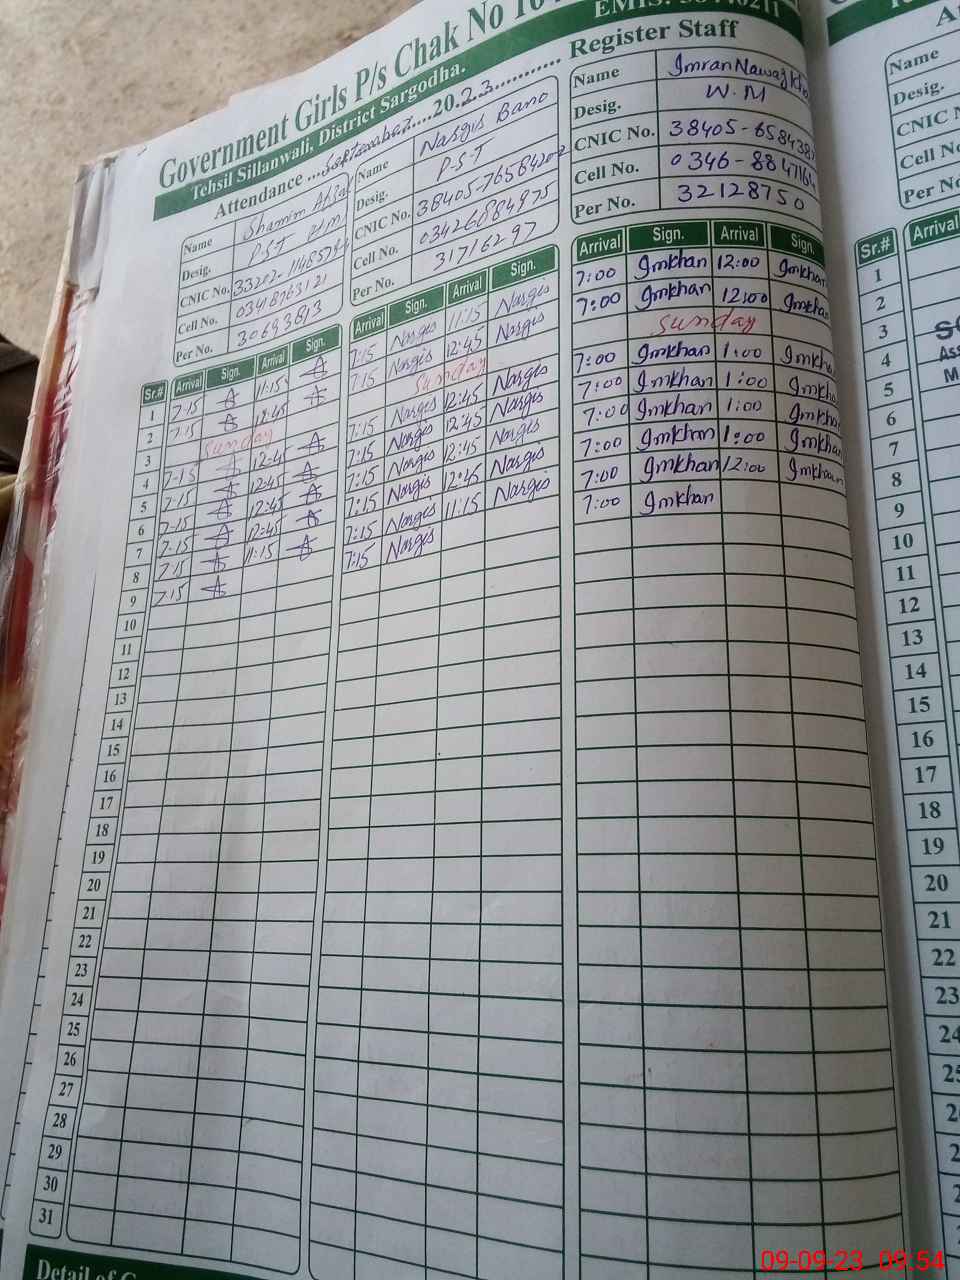 Government Girls P/s Chak No 10
EMIS:
Tehsil Sillanwali, District Sargodha.
Attendance ...September....20.23........... Register Staff
Name Shamim
Desig. P.S.T
CNIC No.
Cell No.
Per No. 30693813
Name Nargis Bano
Desig. P.S.T
CNIC No.
Cell No.
Per No. 31716297
Name Imran Nawaz
Desig. W.M
CNIC No.
Cell No.
Per No. 32128750
Sr.# Arrival Sign. Arrival Sign. Arrival Sign. Arrival Sign. Arrival Sign. Arrival Sign.
1 7:15 11:15 7:15 Nargis 11:15 Nargis 7:00 Imkhan 12:00 Imkhan
2 7:15 12:45 7:15 Nargis 12:45 Nargis 7:00 Imkhan 12:00 Imkhan
3 Sunday Sunday Sunday
4 7:15 12:45 7:15 Nargis 12:45 Nargis 7:00 Imkhan 1:00 Imkhan
5 7:15 12:45 7:15 Nargis 12:45 Nargis 7:00 Imkhan 1:00 Imkhan
6 7:15 12:45 7:15 Nargis 12:45 Nargis 7:00 Imkhan 1:00 Imkhan
7 7:15 12:45 7:15 Nargis 12:45 Nargis 7:00 Imkhan 1:00 Imkhan
8 7:15 11:15 7:15 Nargis 11:15 Nargis 7:00 Imkhan 12:00 Imkhan
9 7:15 7:15 Nargis 7:00 Imkhan
10
11
12
13
14
15
16
17
18
19
20
21
22
23
24
25
26
27
28
29
30
31
Detail of
Name
Desig.
CNIC
Cell No
Per No.
Sr.# Arrival
1
2
3
4
5
6
7
8
9
10
11
12
13
14
15
16
17
18
19
20
21
22
23
24
25
09-09-23 09:54